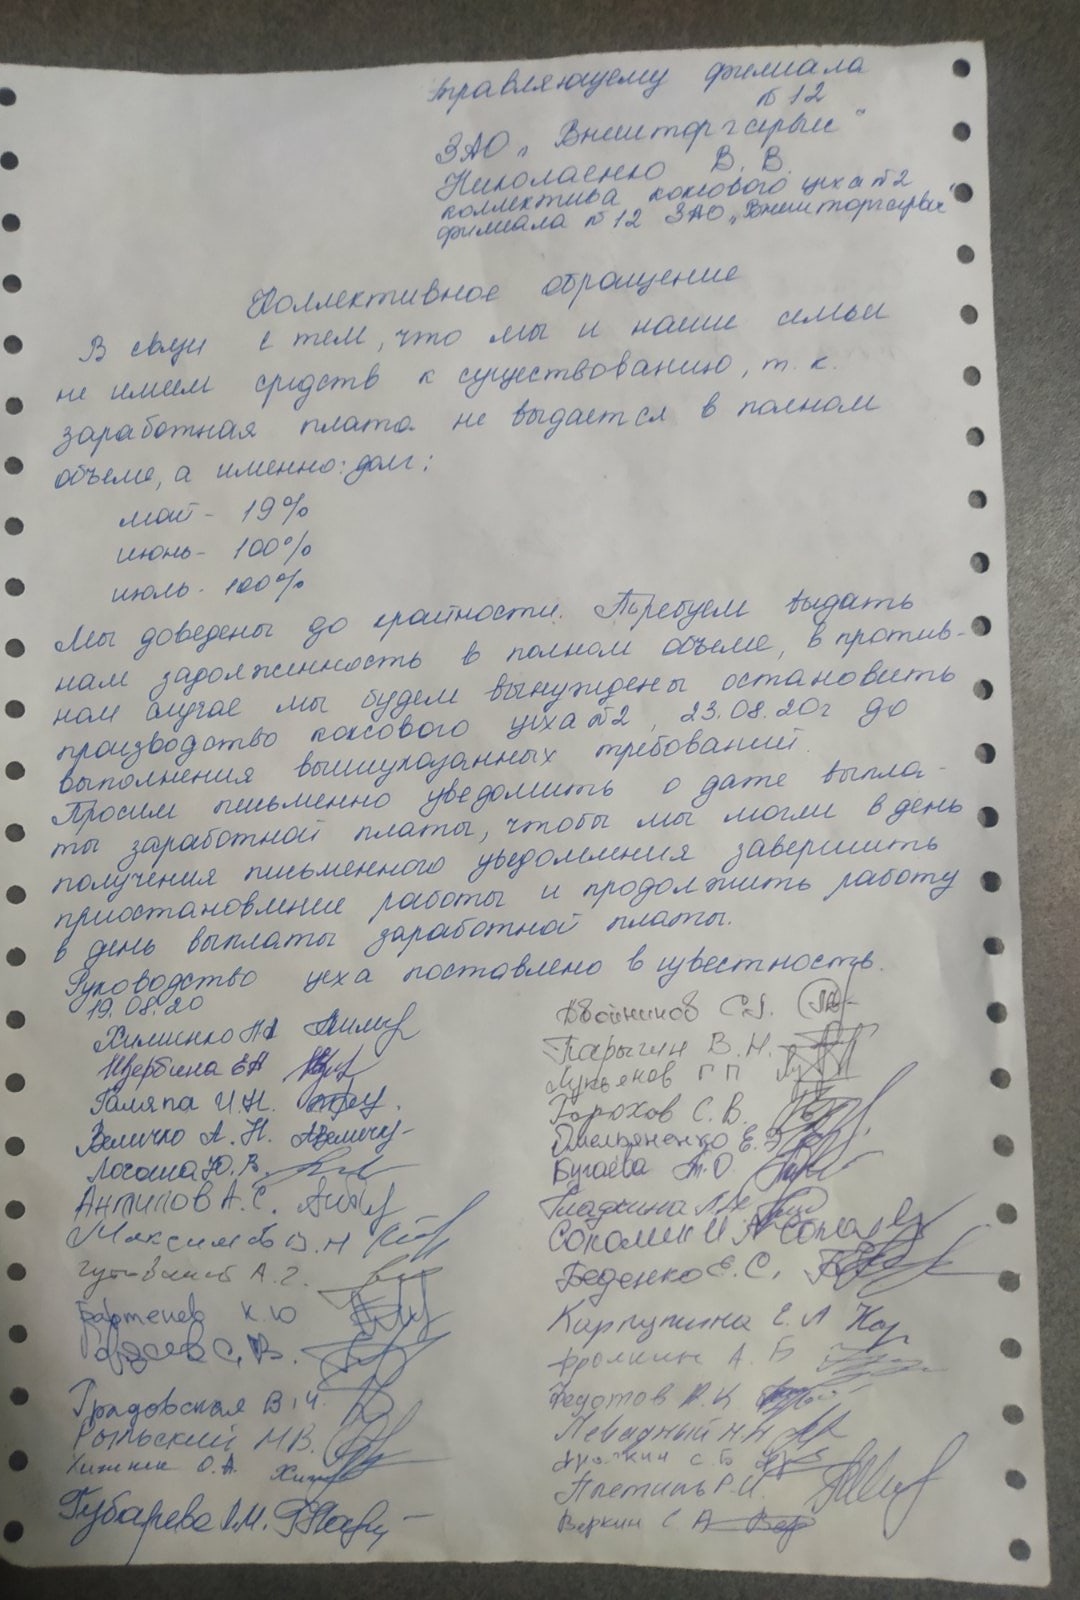 Управляющему филиала
№12
ЗАО "Внешторгсервис"
Николаенко В. В.
коллектива коксового цеха №2
филиала №12 ЗАО "Внешторгсервис"
Коллективное обращение
В связи с тем, что мы и наши семьи
не имеем средств к существованию, т. к.
заработная плата не выдается в полном
объеме, а именно: долг:
май - 19%
июнь - 100%
июль - 100%
Мы доведены до крайности. Требуем выдать
нам задолженность в полном объеме, в против-
ном случае мы будем вынуждены остановить
производство коксового цеха №2, 23.08.20г до
выполнения вышеуказанных требований.
Просим письменно уведомить о дате выпла-
ты заработной платы, чтобы мы могли в день
получения письменного уведомления завершить
приостановление работы и продолжить работу
в день выплаты заработной платы.
Руководство цеха поставлено в известность.
19.08.20
Химинко
Щербина Е А
Галяпа И. Н.
Величко А. Н.
Логоша Ю. В.
Антипов А. С.
Максимов В. Н
А. Г.
Бартенев К. Ю
С. В.
Градовская В. И.
Рыльский М. В.
О. А.
Губарева
Двойников С. А.
Парыгин В. Н.
Лукьянов Г П
Горохов С. В.
Емельяненко Е. В
Бугаёва Т. О.
Гладкина
Соломин И А
Беденко Е. С.
Карпушина Е. А
Фролкин А. Б
Федотов
Левадный Н Н
С Б
Плетинь Р. И.
Веркин С А